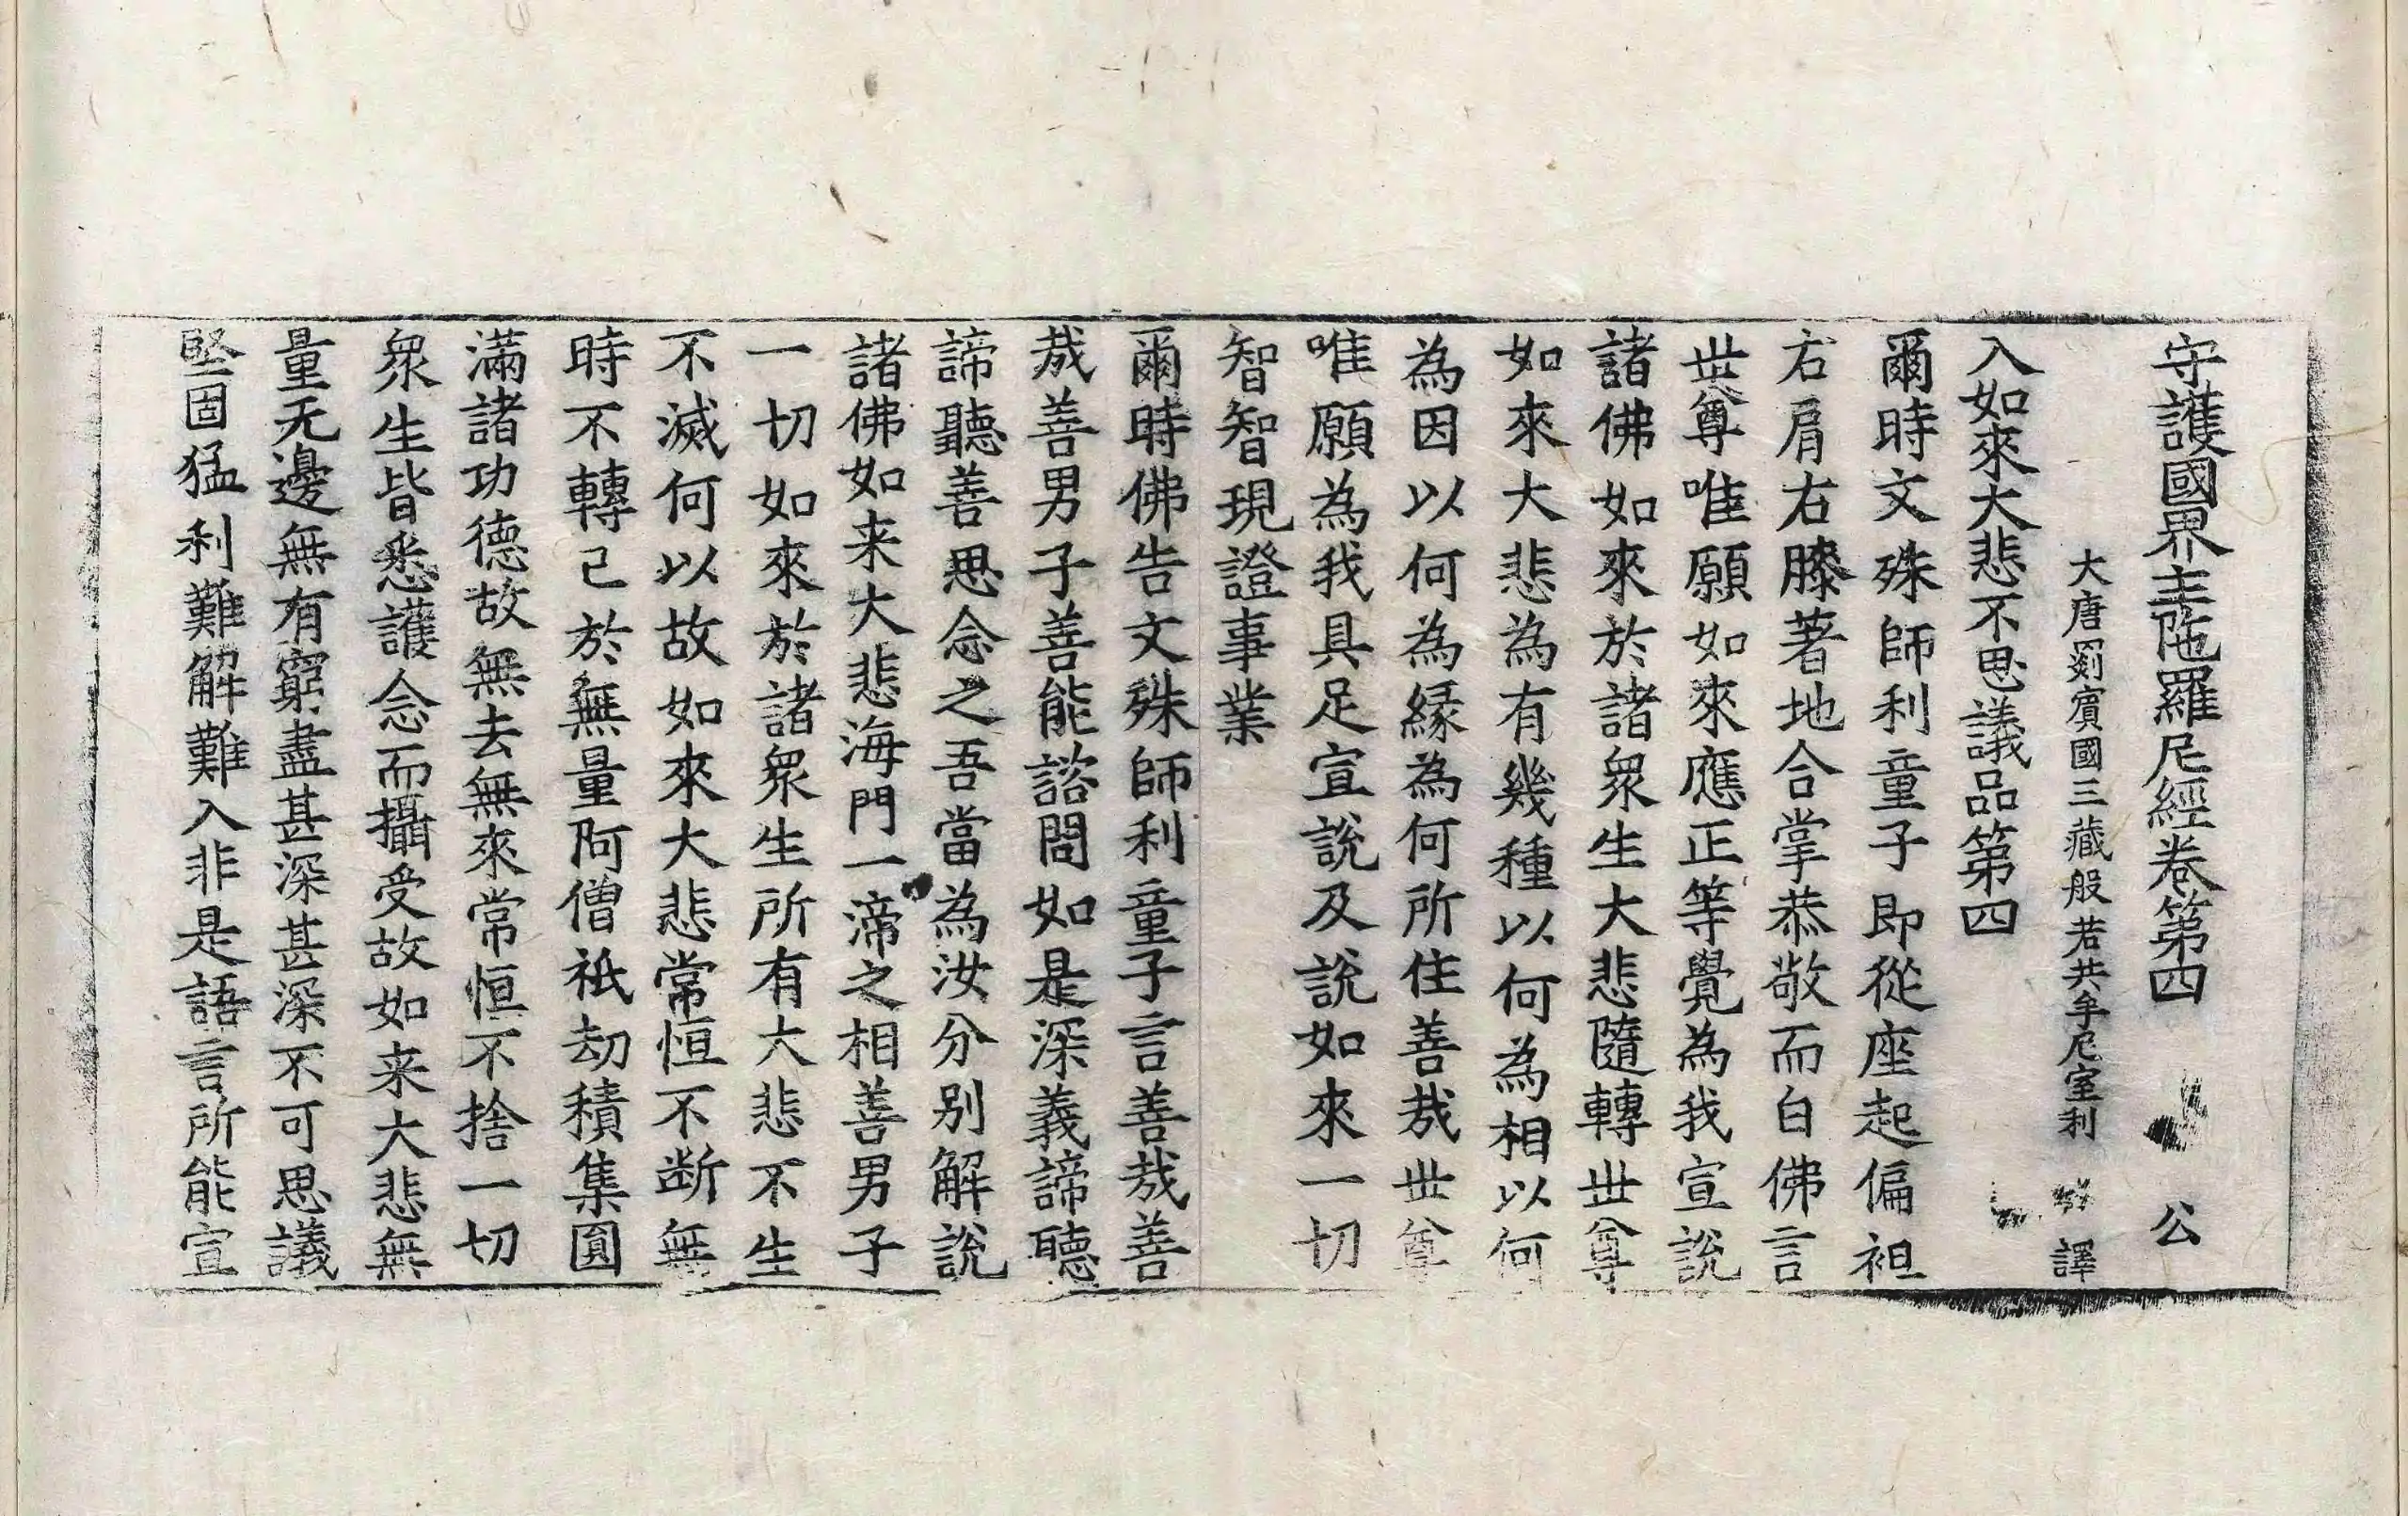 守護國界主陁羅尼經卷第四 公
大唐罽賓國三藏般若共牟尼室利 譯
入如來大悲不思議品第四
爾時文殊師利童子即從座起偏袒
右肩右膝著地合掌恭敬而白佛言
世尊唯願如來應正等覺為我宣說
諸佛如來於諸眾生大悲隨轉世尊
如來大悲為有幾種以何為相以何
為因以何為緣為何所住善哉世尊
唯願為我具足宣說及說如來一切
智智現證事業
爾時佛告文殊師利童子言善哉善
哉善男子善能諮問如是深義諦聽
諦聽善思念之吾當為汝分別解說
諸佛如来大悲海門一渧之相善男子
一切如來於諸眾生所有大悲不生
不滅何以故如來大悲常恒不断無
時不轉已於無量阿僧祇劫積集圓
滿諸功德故無去無來常恒不捨一切
眾生皆悉護念而攝受故如来大悲無
量无邊無有窮盡甚深甚深不可思議
堅固猛利難解難入非是語言所能宣